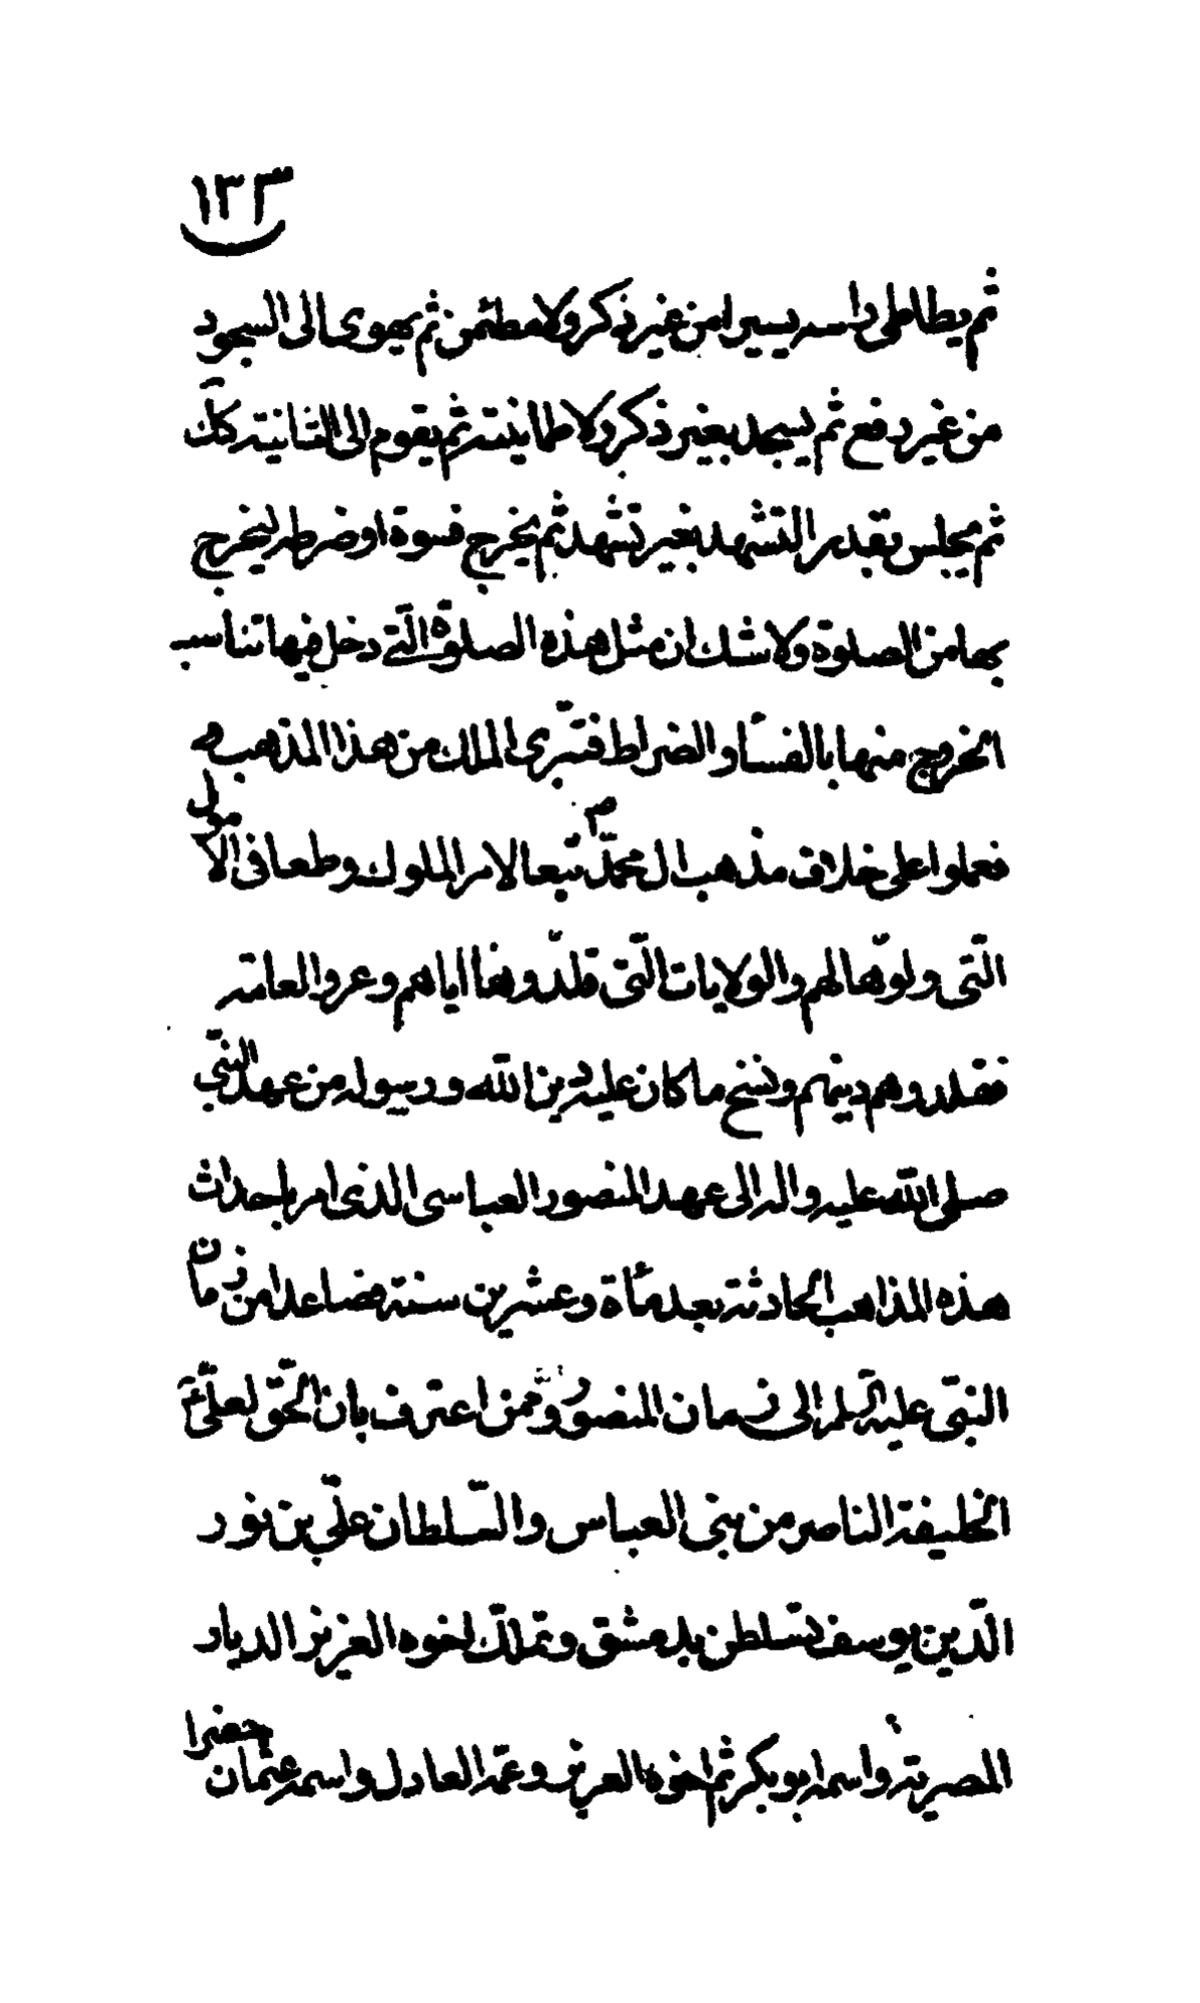 ١٣٣
ثم يطاطى راسه يسيرا من غير ذكر ولا مطئمن ثم يهوى الى السجود
من غير رفع ثم يسجد بغير ذكر ولا طمانينته ثم يقوم الى الثانيته كك
ثم يجلس بقدر التشهد بغير تشهد ثم يخرج فسوة او ضرطه ليخرج
بها من الصلوة ولا شك ان مثل هذه الصلوة التى دخل فيها تناسب
الخروج منها بالفسآ والضراط فتبرى الملك من هذا المذهب
فعملوا على خلاف مذهب ال محمّد ص تبعا لامر الملوك وطمعا فى الاموال
التى ولوّها لهم والولايات التّى قلدّوها اياهم وغروا العامته
فقلدوهم دينهم ونسخ ما كان عليه دين الله ورسوله من عهد النبّي
صلى الله عليه واله الى عهد المنصور العباسى الذى امر باحداث
هذه المذاهب الحادثه بعد مأة وعشرين سنته فصاعدا من زمان
النبّى عليه السلم الى زمان المنصور وممن اعترف بان الحقّ لعلّى ع
الخليفة الناصر من بنى العباس والسّلطان علّي بن نور
الدّين يوسف تسلطن بدمشق وتملك اخوه العزيز الديار
المصريته واسمه ابو بكر ثم اخوه العزيز وعمّه العادل واسمه عثمان حضرا